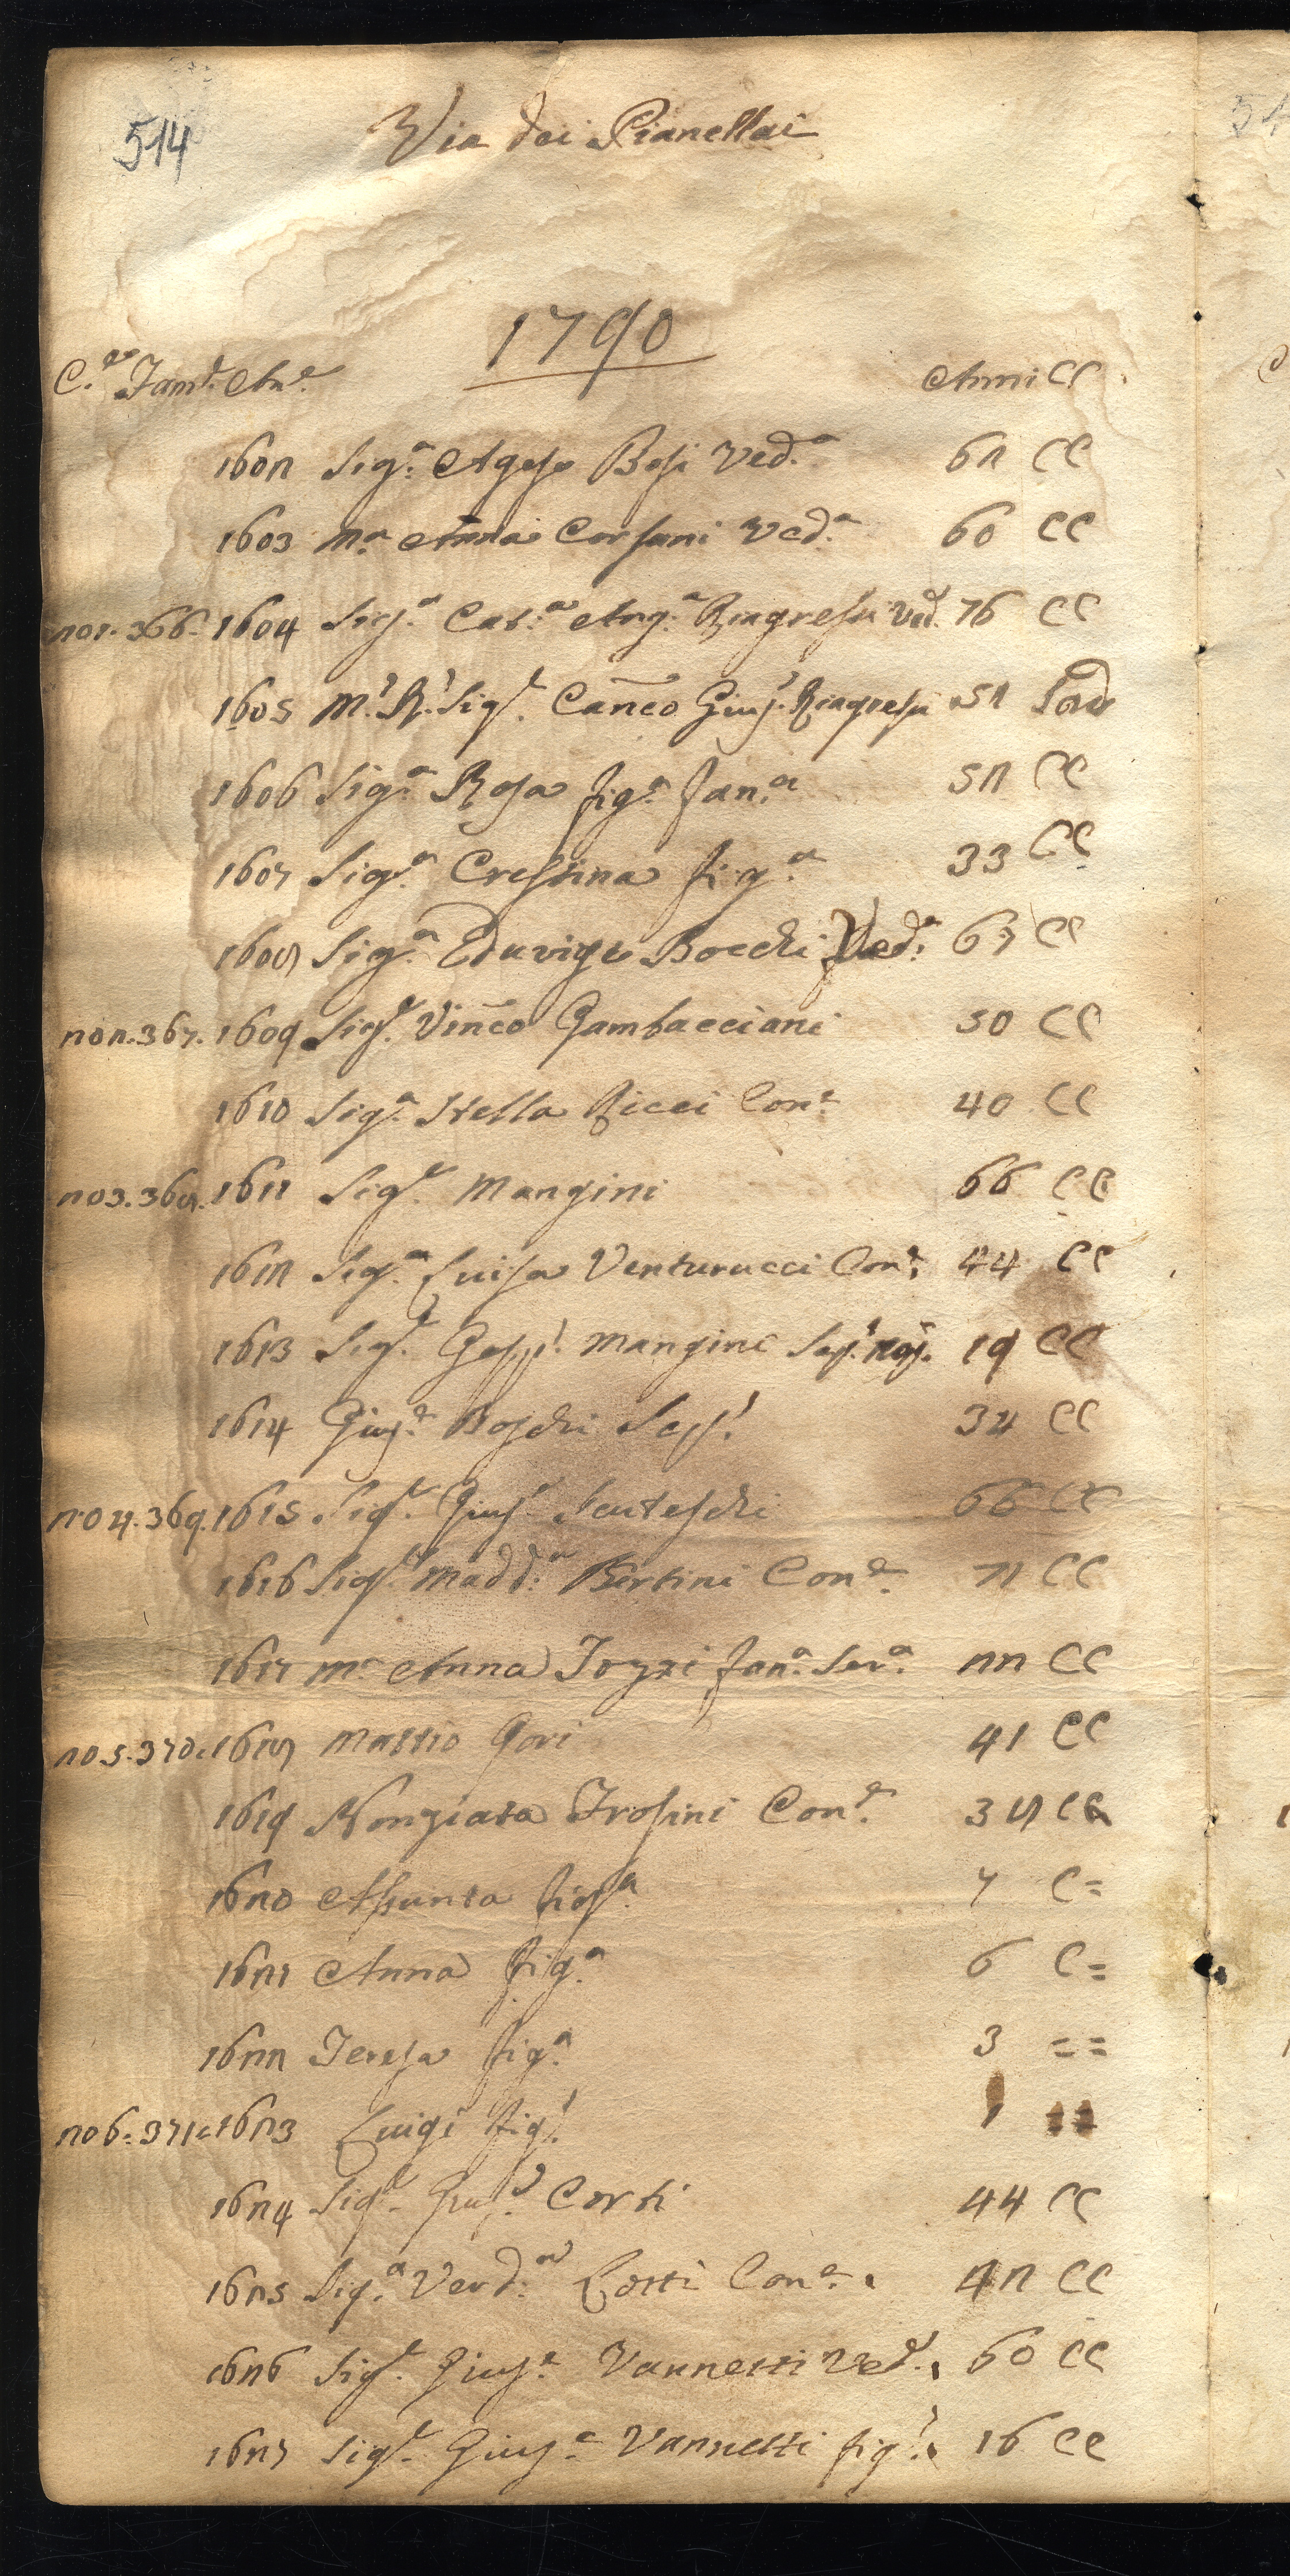 514
Via dei Pianellai
1790
C.e Fam.e An.e Anni CC
1602 Sig.a Agese Bosi Ved.a 62 CC
1603 M.a Anna Corsani Ved.a 60 CC
201. 366. 1604 Sig.a Cat.a Ang.a Ved. 76 CC
1605 M.o R.o Sig.r Canco Gius.e 52
1606 Sig.a Rosa fig.a fan.a 52 CC
1607 Sig.a Crestina fig.a 33 CC
1608 Sig.a Eduvige Bocchi Ved.a 67 CC
202. 367. 1609 Sig.r Vinco Gambacciani 50 CC
1610 Sig.a Stella Ricci Con.e 40 CC
203. 368. 1611 Sig.r Mangini 66 CC
1612 Sig.a Luisa Venturucci Con.e 44 CC
1613 Sig.r Gasp.e Mangini 19 CC
1614 Gius.e Boschi 34 CC
204. 369. 1615 Sig.r Gius.e 66 CC
1616 Sig.a Madd.a Bertini Con.e 71 CC
1617 M.a Anna Tozzi fan.a Ser.a 22 CC
205. 370. 1618 Mattio Gori 41 CC
1619 Nonziata Frosini Con.e 38 CC
1620 Assunta fig.a 7 C=
1621 Anna fig.a 6 C=
1622 Teresa fig.a 3 ==
206. 371. 1623 Luigi fig.o 1 ==
1624 Sig.r Gius.e Corti 44 CC
1625 Sig.a Verd.a Lotti Con.e 42 CC
1626 Sig.r Gius.e Vannetti Ved.o 60 CC
1627 Sig.r Gius.e Vannetti fig.o 16 CC